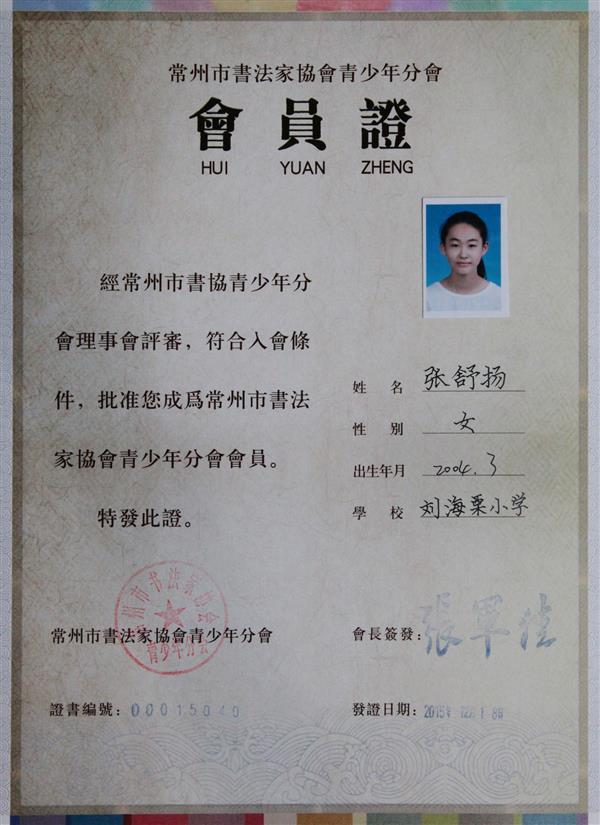 常州市書法家協會青少年分會
會員證
HUI YUAN ZHENG
經常州市書協青少年分
會理事會評審，符合入會條
件，批准您成爲常州市書法
家協會青少年分會會員。
特發此證。
姓 名 张舒扬
性 别 女
出生年月 2004.3
學 校 刘海粟小学
常州市书法家协会
青少年分会
常州市書法家協會青少年分會
會長簽發：
證書編號：00015040
發證日期：2015年12月18日